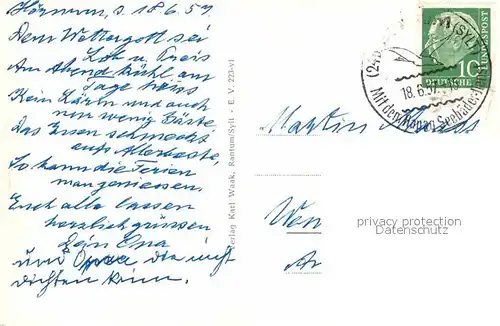 Hörnum, d. 18.6.57
Dem Wettergott sei
Lob u. Preis
Am Abend kühl am
Tage heiss
Kein Lärm und auch
nur wenig Gäste
das Essen schmeckt
aufs Allerbeste,
So kann die Ferien
man geniessen.
Euch alle lassen
herzlich grüssen
Dein
und Opa die nicht
dichten kann.
Verlag Karl Waak, Rantum/Sylt - E. V. 223-v1
(SYLT)
18.6.57
Mit den Seebädern
10
DEUTSCHE
BUNDESPOST
Martin
privacy protection
DELCAMPE